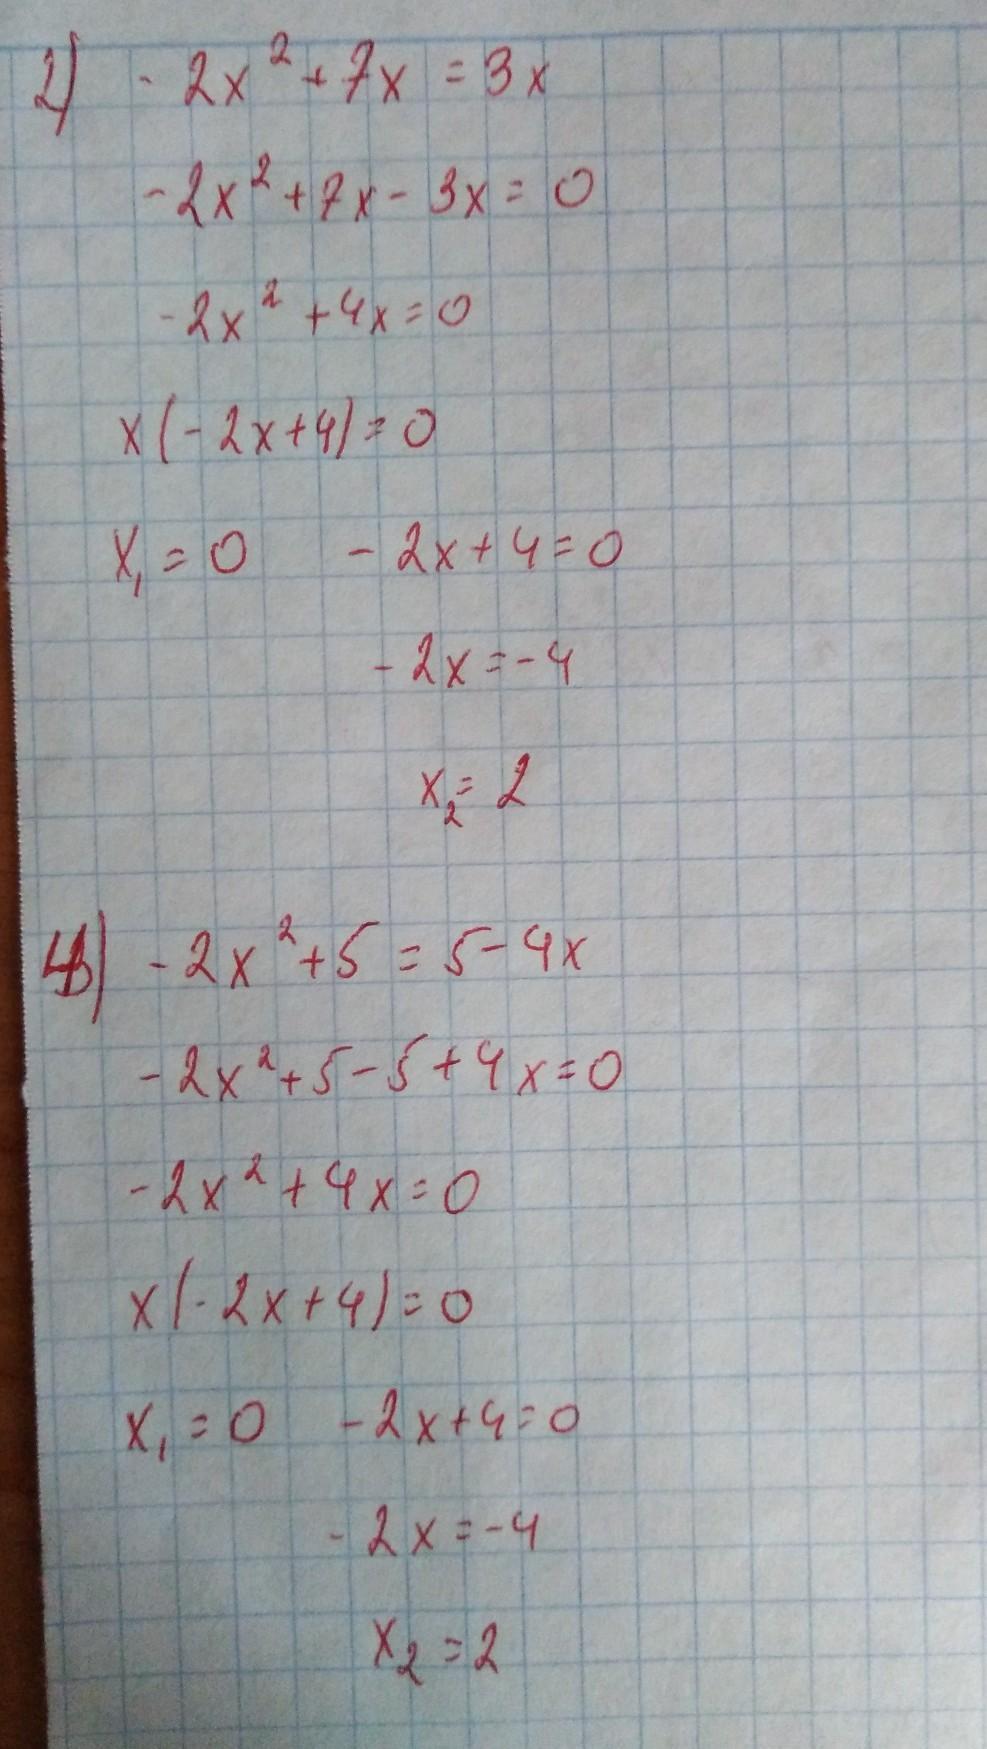 2) -2x² + 7x = 3x
-2x² + 7x - 3x = 0
-2x² + 4x = 0
x(-2x+4) = 0
x₁ = 0 -2x+4=0
-2x = -4
x₂ = 2
4) -2x² + 5 = 5 - 4x
-2x² + 5 - 5 + 4x = 0
-2x² + 4x = 0
x(-2x+4) = 0
x₁ = 0 -2x+4=0
-2x = -4
x₂ = 2